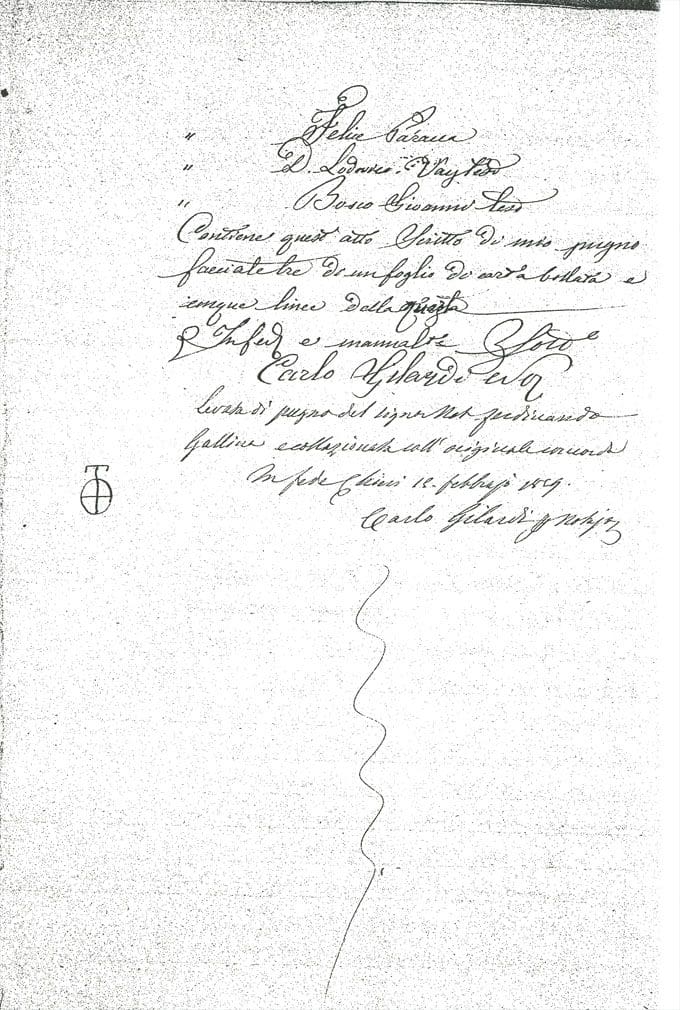 " Felice Paracca
" D. Lodovico Vay test
" Bosco Giovanni test
Contiene quest'atto Scritto di mio pugno
facciate tre di un foglio di carta bollata e
cinque linee dalla quarta
In fede e manualte Sotto
Carlo Gilardi Not
levata di pugno del signor Not Ferdinando
Gallina e collazionata coll'originale concorda
In fede Chieri 12. febbrajo
Carlo Gilardi Notajo